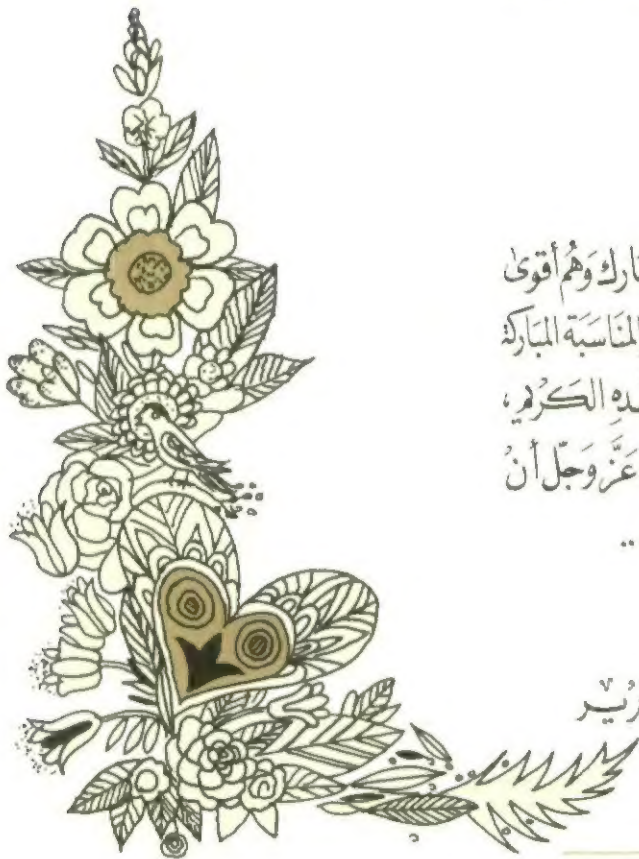 ارك وَهُم أقوىٰ
المنَاسَبَة المبَاركة
ـدهِ الكَريمِ،
عَزَّ وَجَلّ أنْ
..
ـرير